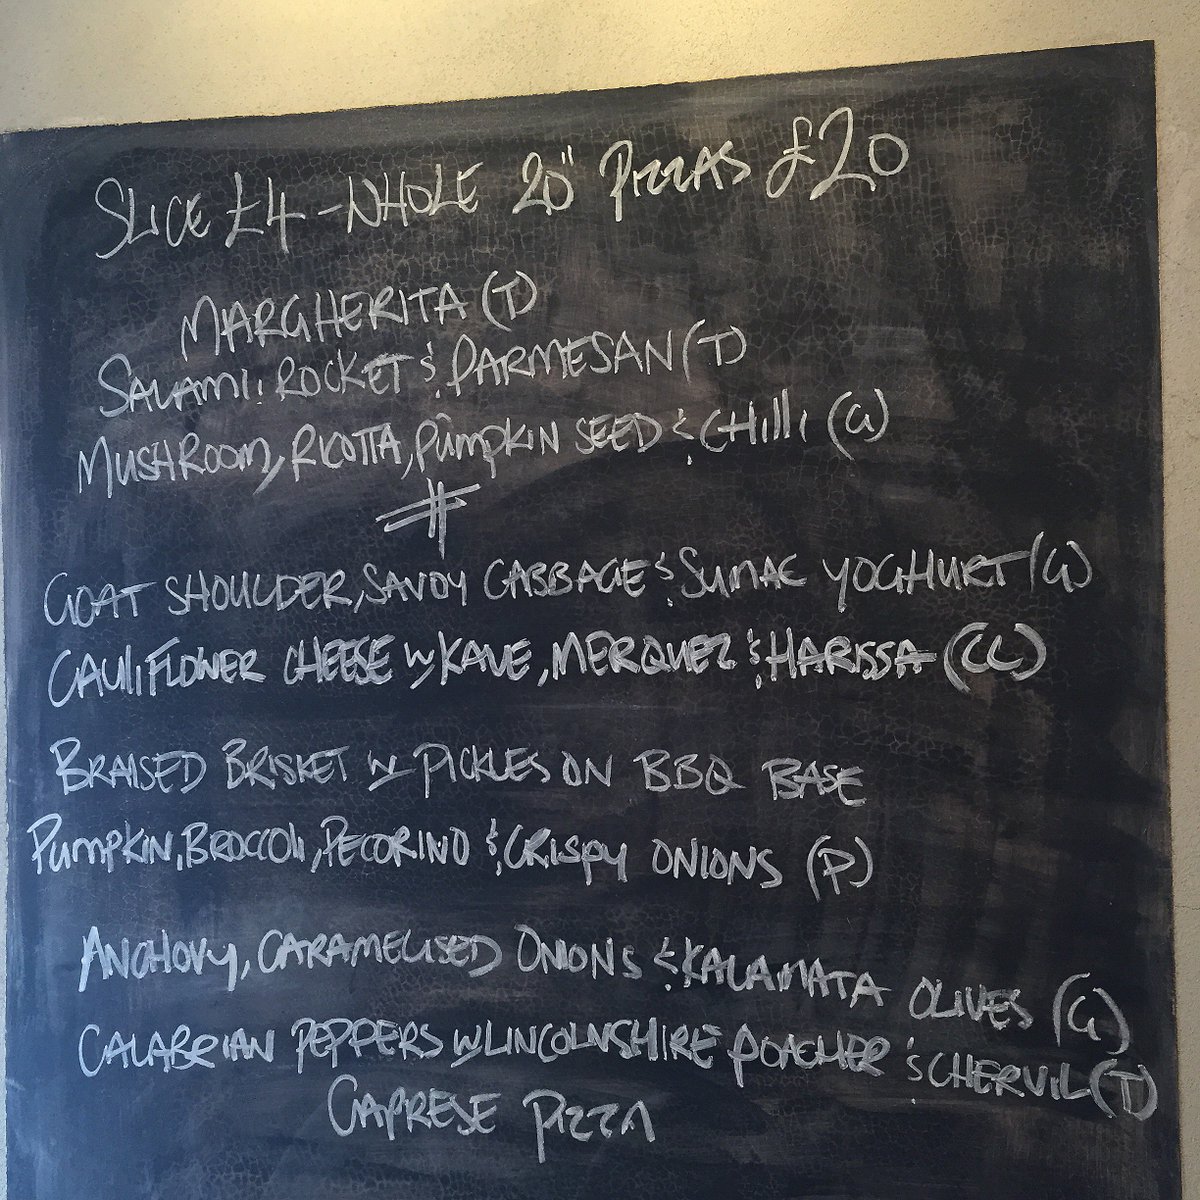 SLICE £4 - WHOLE 20" PIZZAS £20
MARGHERITA (T)
SALAMI, ROCKET & PARMESAN (T)
MUSHROOM, RICOTTA, PUMPKIN SEED & CHILLI (G)
GOAT SHOULDER, SAVOY CABBAGE & SUMAC YOGHURT (G)
CAULIFLOWER CHEESE w KALE, MERQUEZ & HARISSA (CL)
BRAISED BRISKET w PICKLES ON BBQ BASE
PUMPKIN, BROCCOLI, PECORINO & CRISPY ONIONS (P)
ANCHOVY, CARAMELISED ONIONS & KALAMATA OLIVES (G)
CALABRIAN PEPPERS w LINCOLNSHIRE POACHER & CHERVIL (T)
CAPRESE PIZZA